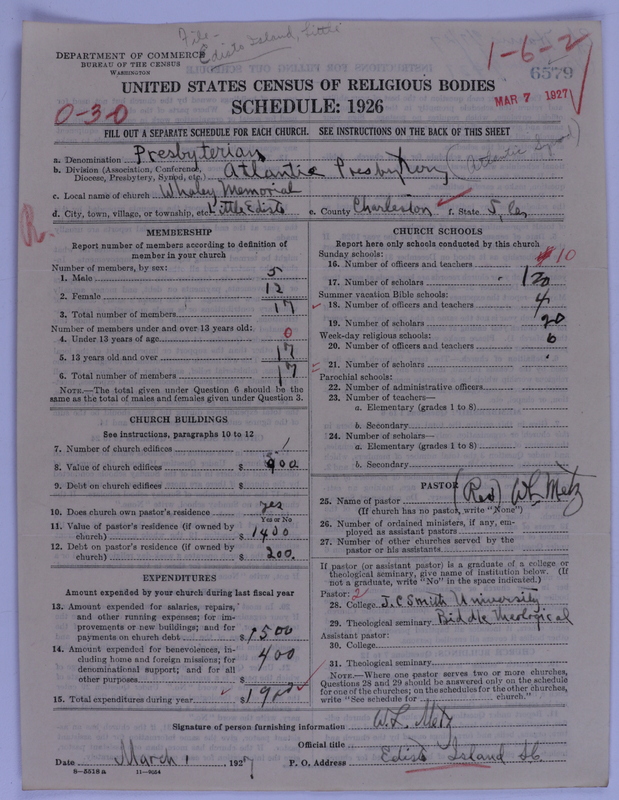 File-
Edisto Island, Little
DEPARTMENT OF COMMERCE
BUREAU OF THE CENSUS
WASHINGTON
1-6-2
6579
MAR 7 1927
UNITED STATES CENSUS OF RELIGIOUS BODIES
SCHEDULE: 1926
0-30
FILL OUT A SEPARATE SCHEDULE FOR EACH CHURCH. SEE INSTRUCTIONS ON THE BACK OF THIS SHEET
a. Denomination Presbyterian
b. Division (Association, Conference, Diocese, Presbytery, Synod, etc.) Atlantic Presbytery (Atlantic Synod)
c. Local name of church Whaley Memorial
d. City, town, village, or township, etc. Little Edisto e. County Charleston f. State
R.
MEMBERSHIP
Report number of members according to definition of
member in your church
Number of members, by sex:
1. Male 5
2. Female 12
3. Total number of members 17
Number of members under and over 13 years old:
4. Under 13 years of age 0
5. 13 years old and over 17
6. Total number of members 17
NOTE.—The total given under Question 6 should be
same as the total of males and females given under Question 3.
CHURCH BUILDINGS
See instructions, paragraphs 10 to 12
7. Number of church edifices 1
8. Value of church edifices $ 900
9. Debt on church edifices $
10. Does church own pastor's residence yes
Yes or No
11. Value of pastor's residence (if owned by
church) $ 1400
12. Debt on pastor's residence (if owned by
church) $ 200.
EXPENDITURES
Amount expended by your church during last fiscal year
13. Amount expended for salaries, repairs,
and other running expenses; for im-
provements or new buildings; and for
payments on church debt $ 1500
14. Amount expended for benevolences, in-
cluding home and foreign missions; for
denominational support; and for all
other purposes $ 400
15. Total expenditures during year $ 1900
CHURCH SCHOOLS
Report here only schools conducted by this church
Sunday schools:
16. Number of officers and teachers 10
17. Number of scholars 120
Summer vacation Bible schools:
18. Number of officers and teachers 4
19. Number of scholars 20
Week-day religious schools:
20. Number of officers and teachers
21. Number of scholars
Parochial schools:
22. Number of administrative officers
23. Number of teachers—
a. Elementary (grades 1 to 8)
b. Secondary
24. Number of scholars—
a. Elementary (grades 1 to 8)
b. Secondary
PASTOR
25. Name of pastor (Rev) W L Metz
(If church has no pastor, write "None")
26. Number of ordained ministers, if any, em-
ployed as assistant pastors
27. Number of other churches served by the
pastor or his assistants
If pastor (or assistant pastor) is a graduate of a college or
theological seminary, give name of institution below. (If
not a graduate, write "No" in the space indicated.)
Pastor: 2
28. College J. C Smith University
29. Theological seminary Biddle Theological
Assistant pastor:
30. College
31. Theological seminary
NOTE.—Where one pastor serves two or more churches,
Questions 28 and 29 should be answered only on the schedule
for one of the churches; on the schedules for the other churches,
write "See schedule for church."
Signature of person furnishing information W. L. Metz
Official title
Date March 1 1927 P. O. Address Edisto Island SC
8-5518a 11-9034